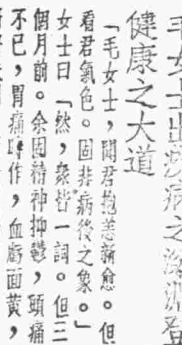 毛女士出疾病之深淵登
健康之大道
「毛女士,聞君抱恙新愈。但
看君氣色。固非病後之象。」
女士曰「然,衆皆一詞。但三
個月前。余因精神抑鬱,頭痛
不已,胃痛時作,血虧面黃,